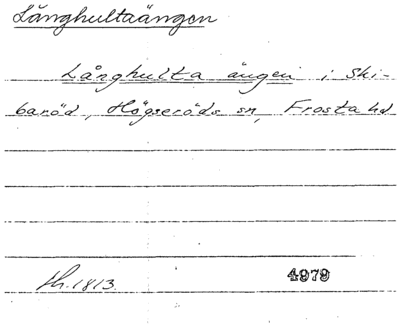 Långhultaängen
Långhulta ängen i Ski-
baröd, Högseröds sn, Frosta hd
th. 1813. 4979